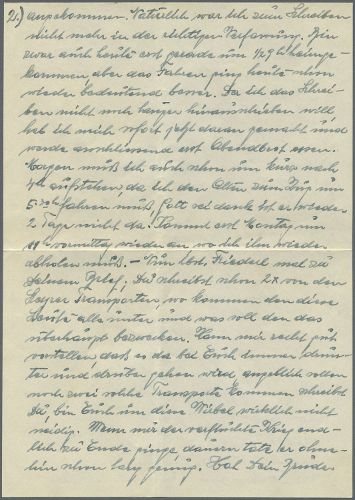 2.) angekommen. Natürlich war ich zum Schreiben
nicht mehr in der richtigen Verfassung. Bin
zwar auch heute erst gerade um 1/29 h heimge-
kommen, aber das Fahren ging heute schon
wieder bedeutend besser. Da ich das Schrei-
ben nicht noch länger hinausschieben will
hab ich mich sofort jetzt daran gemacht und
werde anschliessend erst Abendbrot essen.
Morgen muß ich auch schon um kurz nach
4 h aufstehen, da ich den Alten zum Zug um
5 h fahren muß, Gott sei dank ist er wieder
2 Tage nicht da! Kommt erst Montag um
11 h vormittag wieder an wo ich ihn wieder
abholen muß. – Nun aber, Friedel mal zu
Deinem Brief. Du schreibst schon 2x von den
Transporten, wo kommen denn diese
Leute alle unter und was soll denn das
überhaupt bezwecken. Kann mir recht gut
vorstellen, daß es da bei Euch immer drun-
ter und drüber gehen wird angeblich sollen
noch zwei solche Transporte kommen schreibst
Du, bin Euch um diese Möbel wirklich nicht
neidig. Wenn nur der verfluchte Krieg end-
lich zu Ende ginge, dauern tät er ohne-
hin schon lang genug. Hat Dein Bruder